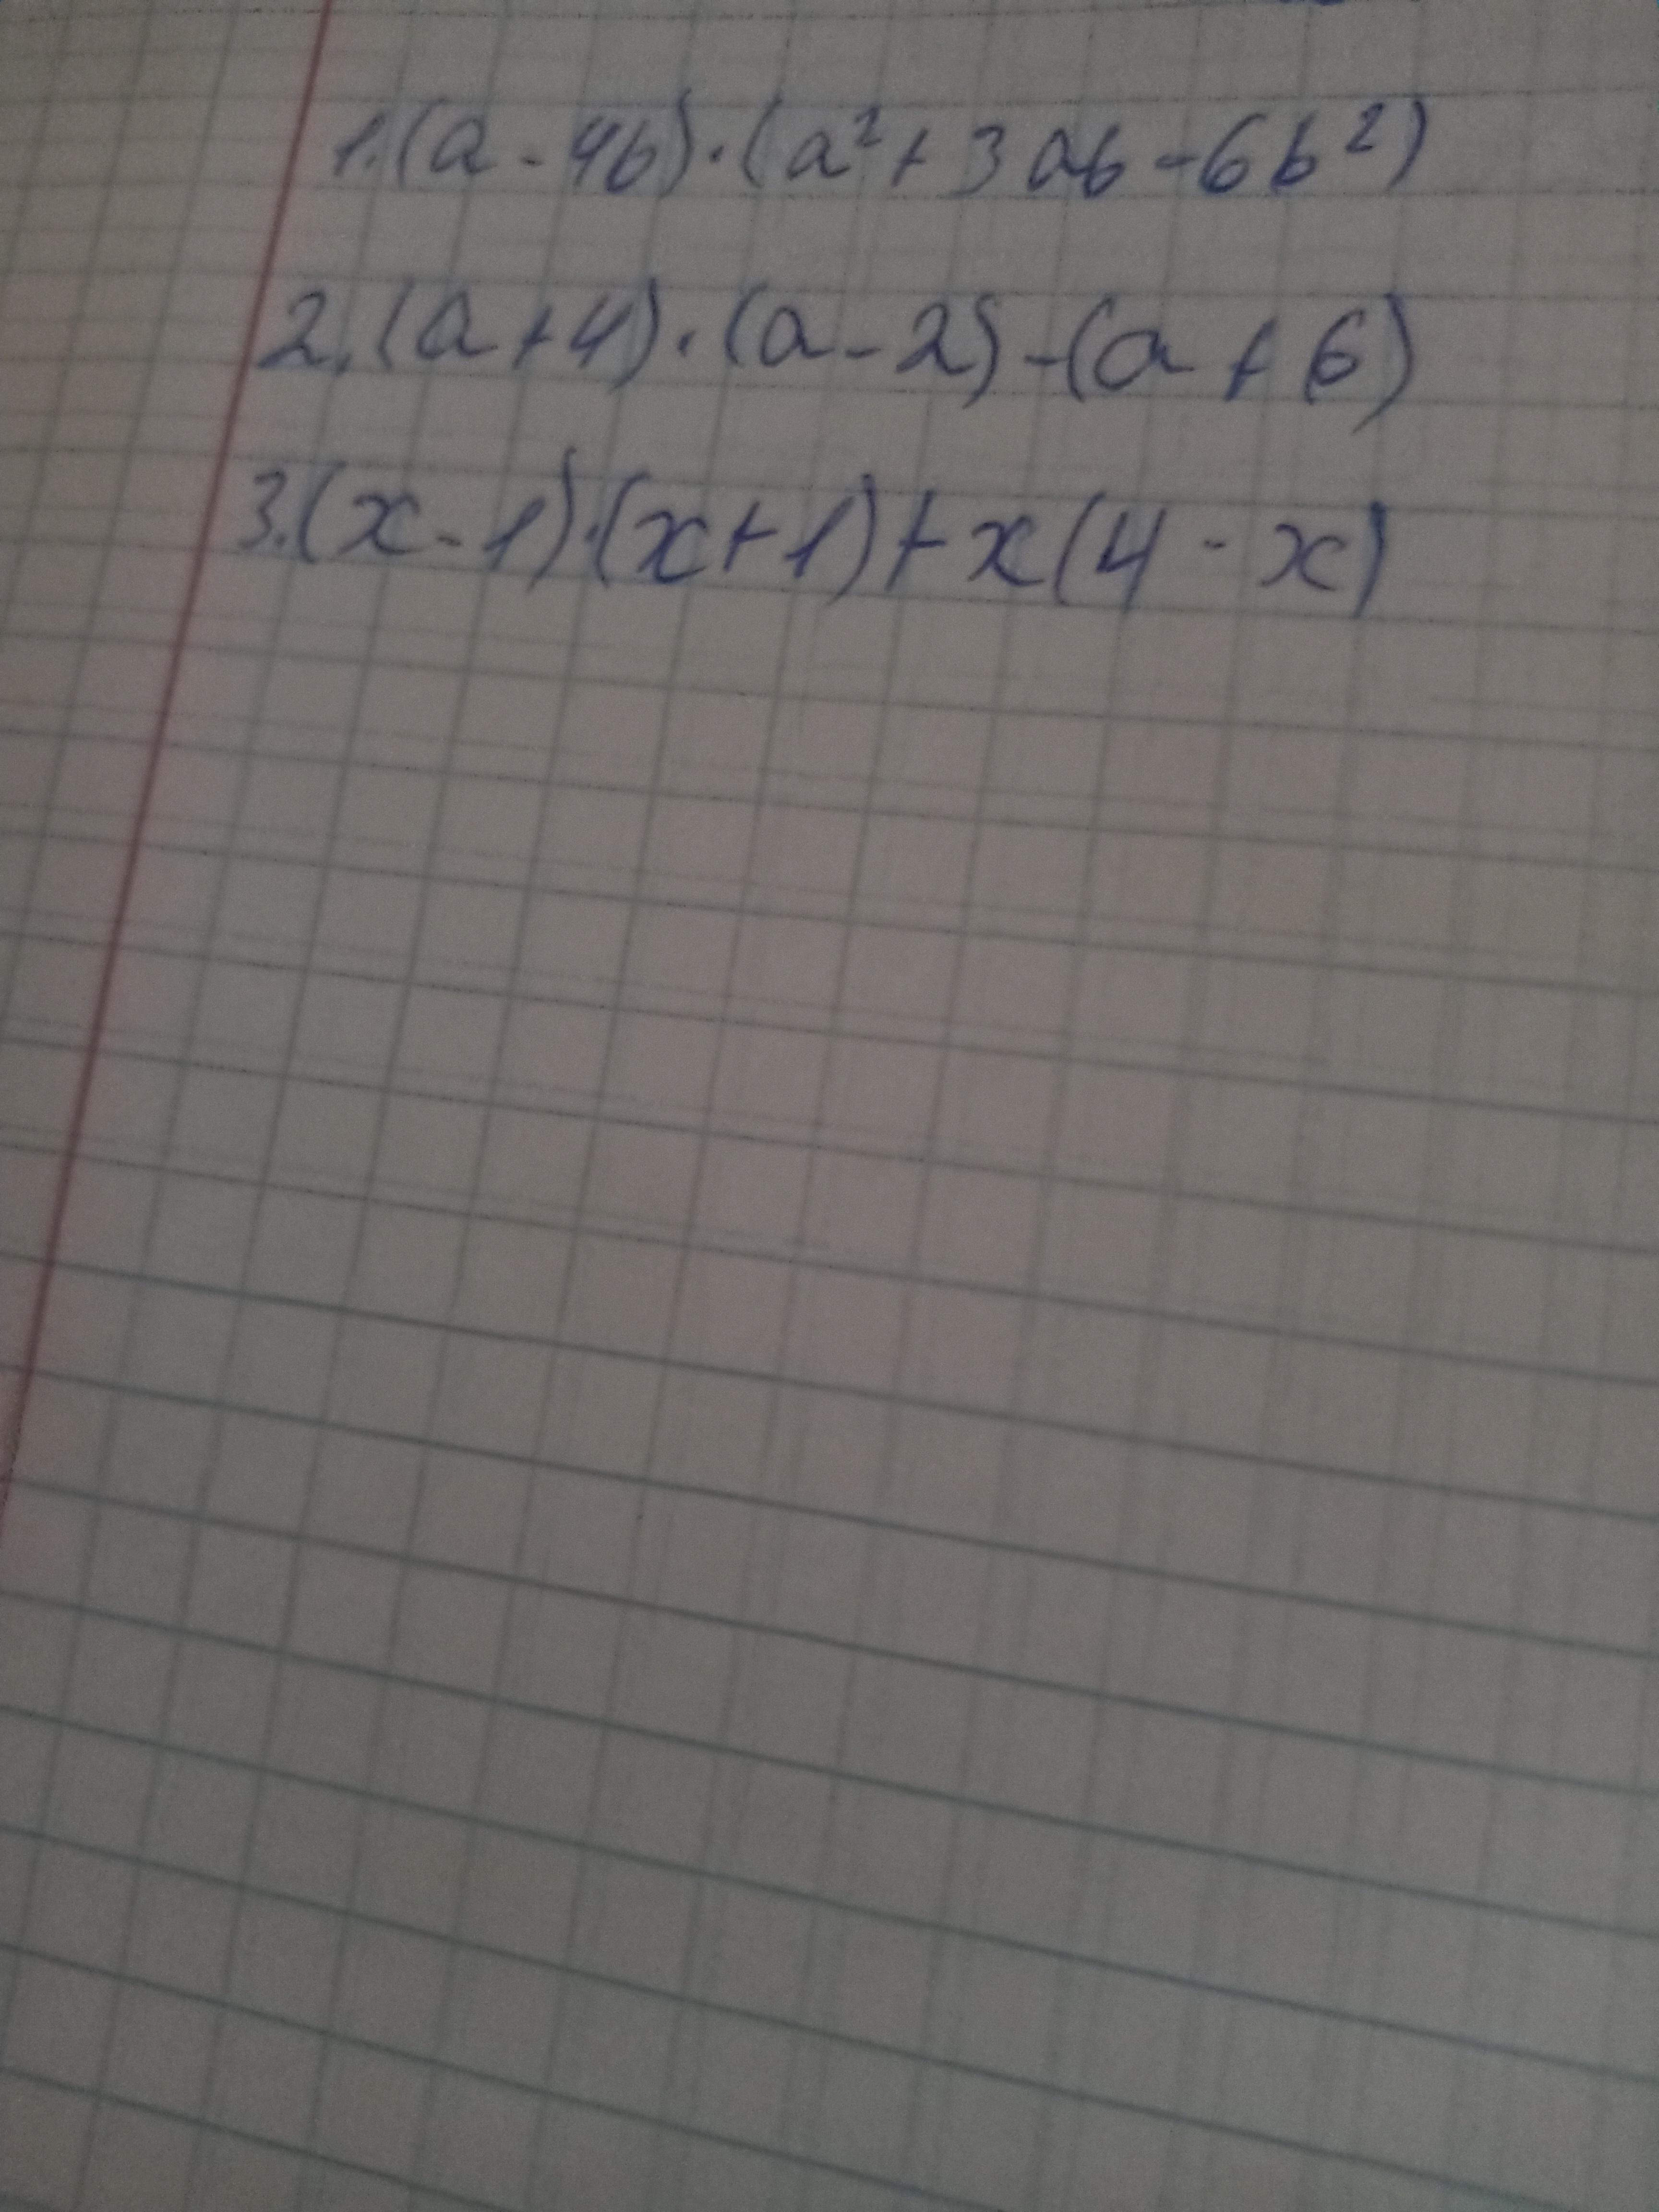 1.(a-4b)·(a²+3ab-6b²)
2.(a+4)·(a-2)-(a+6)
3.(x-1)·(x+1)+x(4-x)